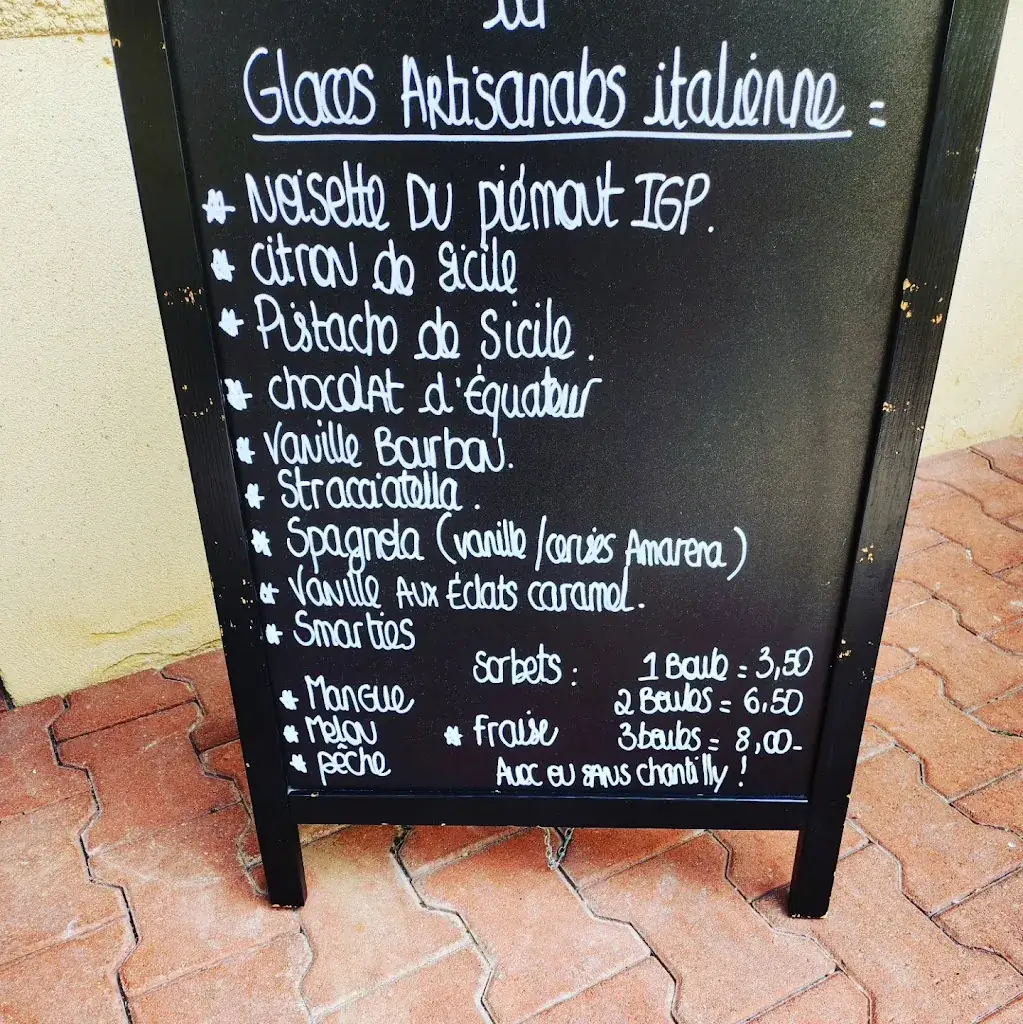 Glaces Artisanales italienne =
* Noisette Du piémont IGP.
* citron de Sicile
* Pistache de Sicile.
* chocolat d'Équateur
* Vanille Bourbon.
* Stracciatella.
* Spagnola (vanille/cerises Amarena)
* Vanille Aux Éclats caramel.
* Smarties
Sorbets :
* Mangue
* Melon
* pêche
* fraise
1 Boule = 3,50
2 Boules = 6,50
3 boules = 8,00-
Avec ou sans chantilly !